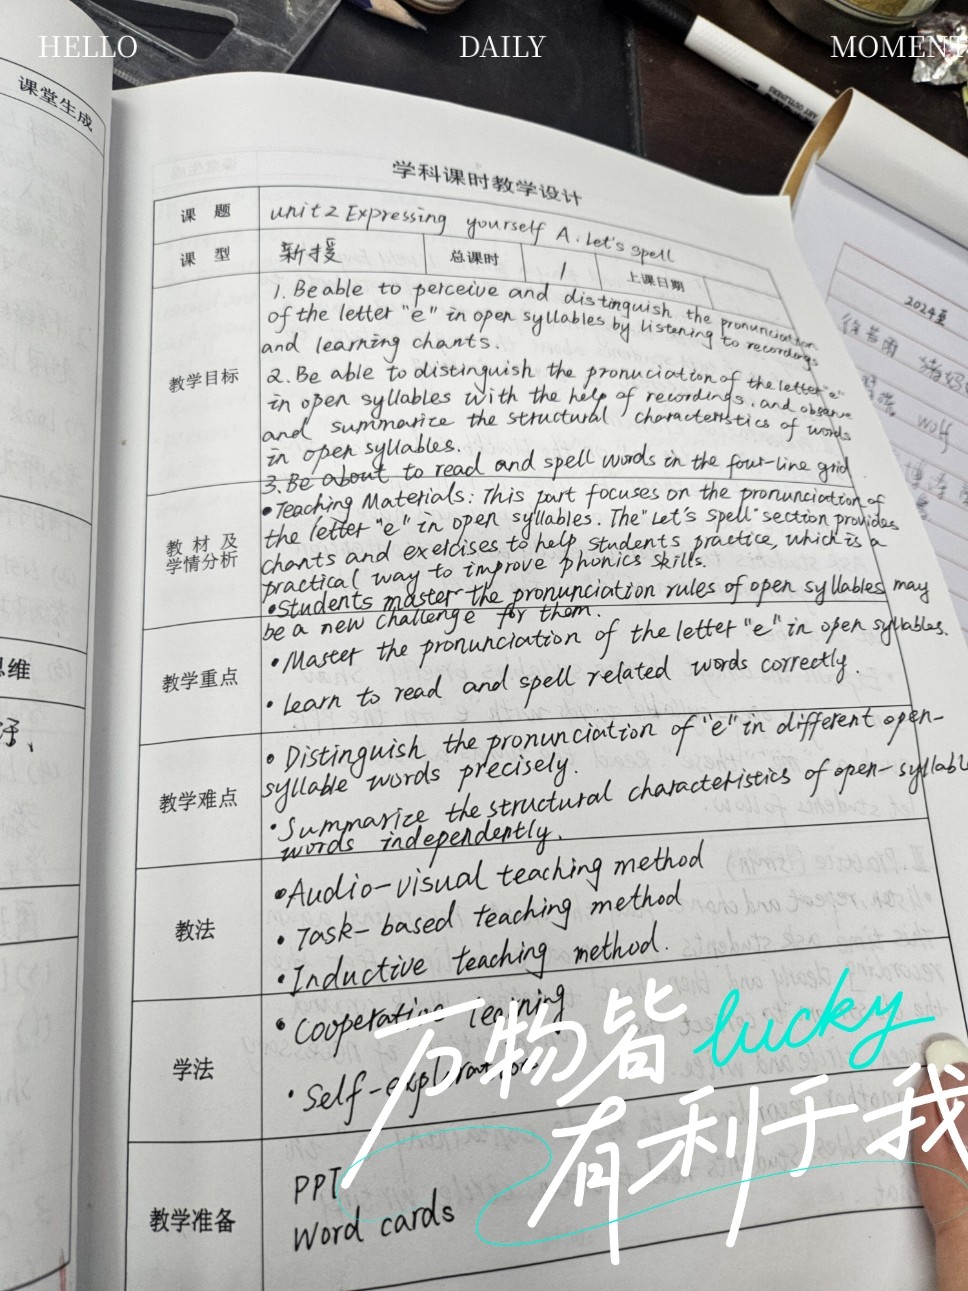 HELLO DAILY MOMENT
课堂生成
学科课时教学设计
课 题 unit2 Expressing yourself A. Let's spell
课 型 新授 总课时 1 上课日期
教学目标
1. Be able to perceive and distinguish the pronunciation
of the letter "e" in open syllables by listening to recordings
and learning chants.
2. Be able to distinguish the pronuciation of the letter "e"
in open syllables with the help of recordings, and observe
and summarize the structural characteristics of words
in open syllables.
3. Be about to read and spell words in the four-line grid
教 材 及
学情分析
•Teaching Materials: This part focuses on the pronunciation of
the letter "e" in open syllables. The "Let's spell" section provides
chants and exercises to help students practice, which is a
practical way to improve phonics skills.
•Students master the pronunciation rules of open syllables may
be a new challenge for them.
教学重点
• Master the pronunciation of the letter "e" in open syllables.
• Learn to read and spell related words correctly.
教学难点
• Distinguish the pronunciation of "e" in different open-
syllable words precisely.
• Summarize the structural characteristics of open-syllable
words independently.
教法
•Audio-visual teaching method
• Task-based teaching method
• Inductive teaching method.
学法
• Cooperative
• Self-
教学准备
PPT
Word cards
万物皆 lucky
有利于我
思维
2024年
wolf